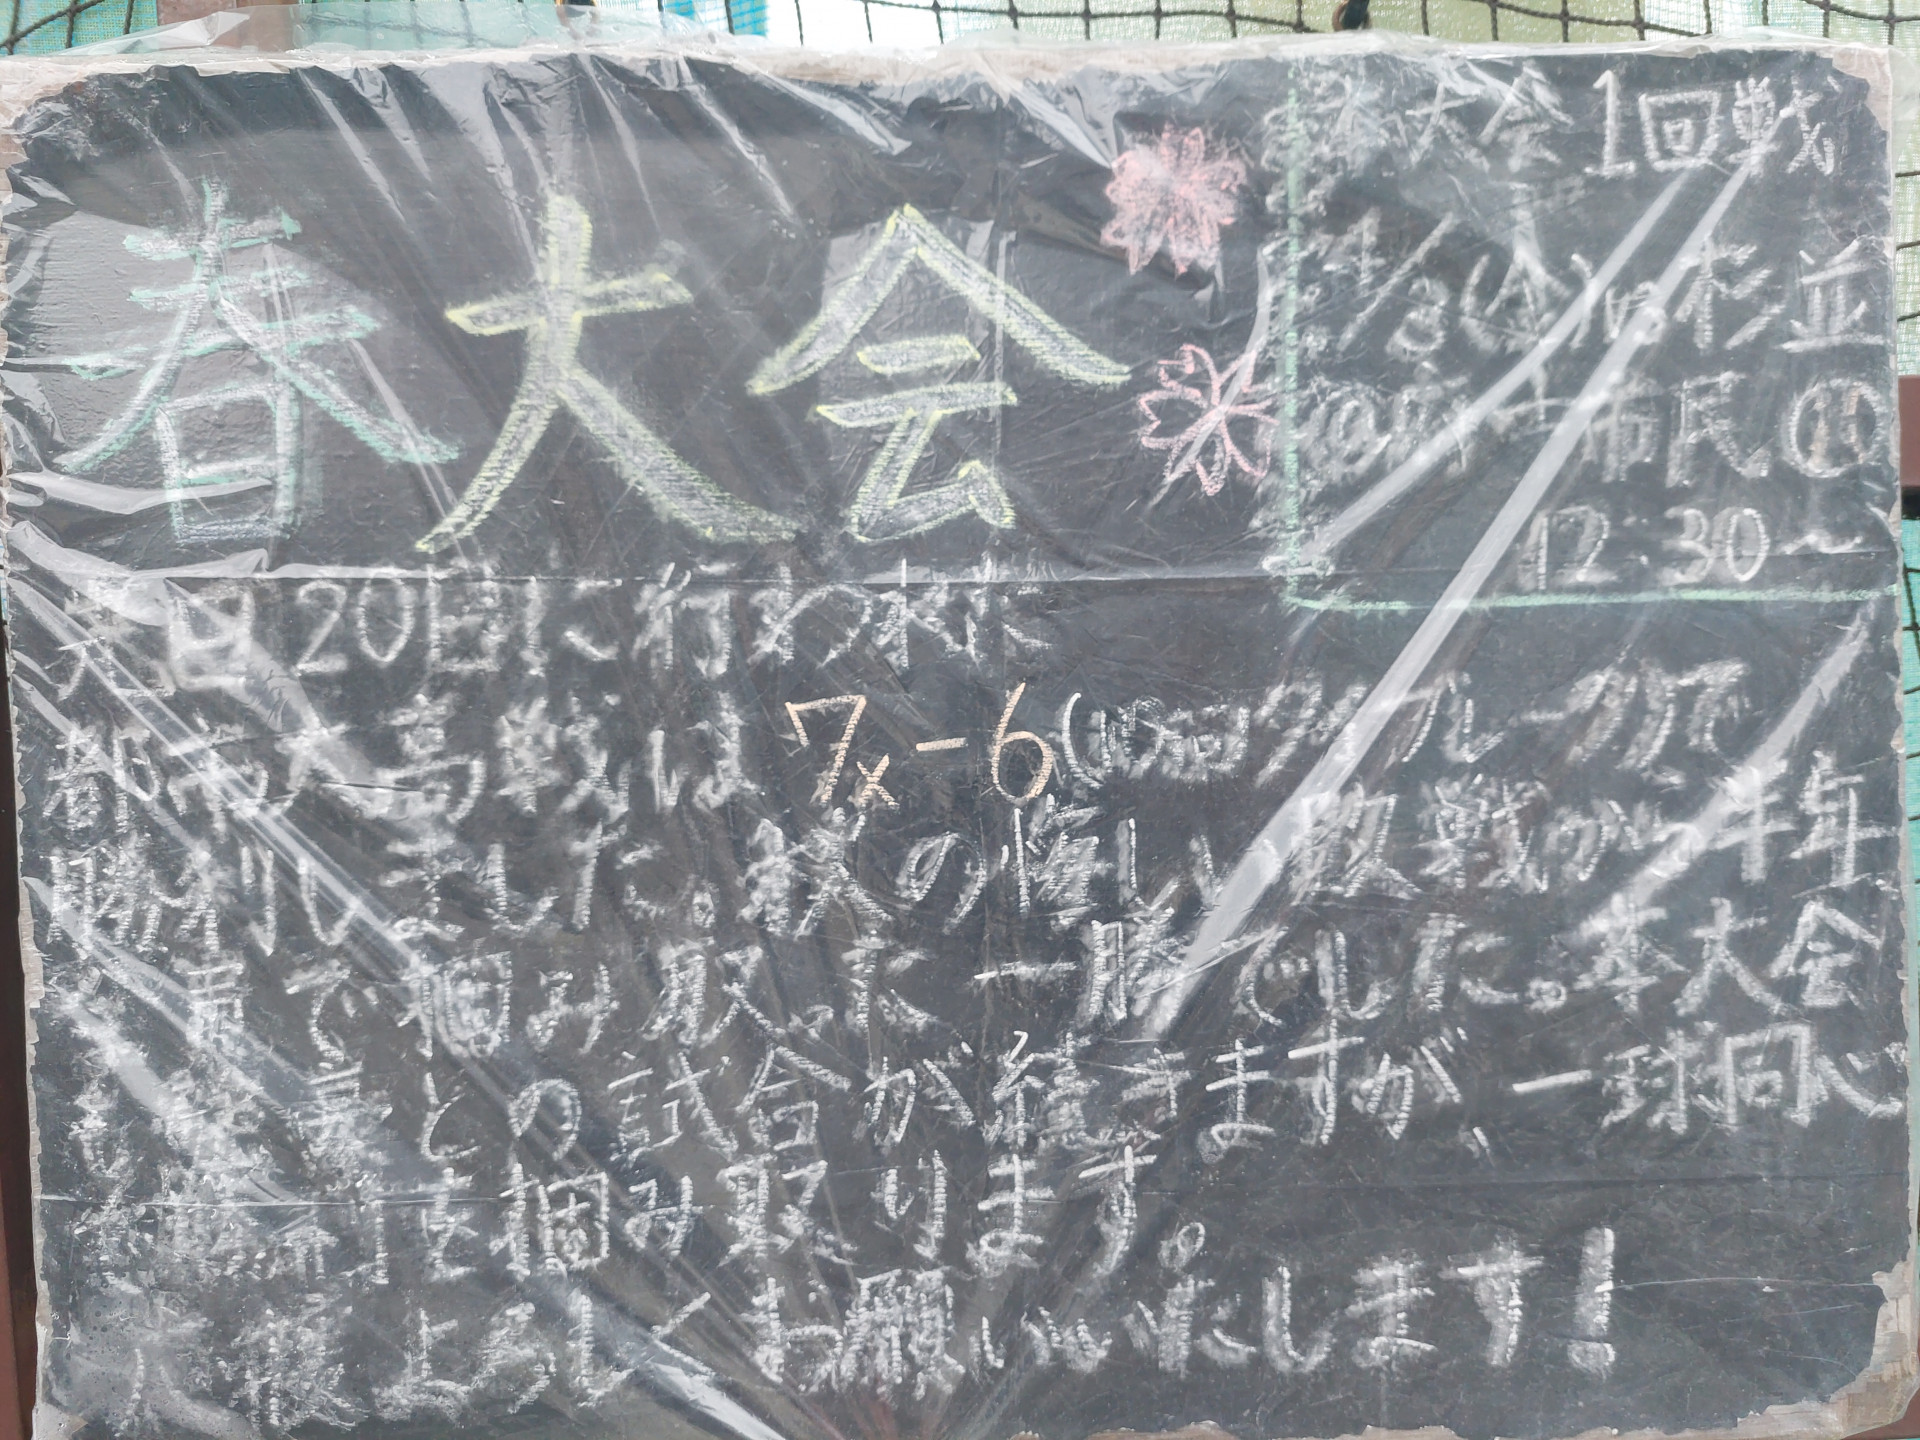 春大会
春大会1回戦
4/3(金)vs杉並
市民①
12:30~
先日20日に行われた
都 大 高 戦は 7x-6(10回)タイブレークで
勝利しました。秋の悔しい敗戦から半年
で掴み取った一勝でした。本大会
との試合が続きますが、一球同心
を掴み取ります。
応援よろしくお願いいたします!